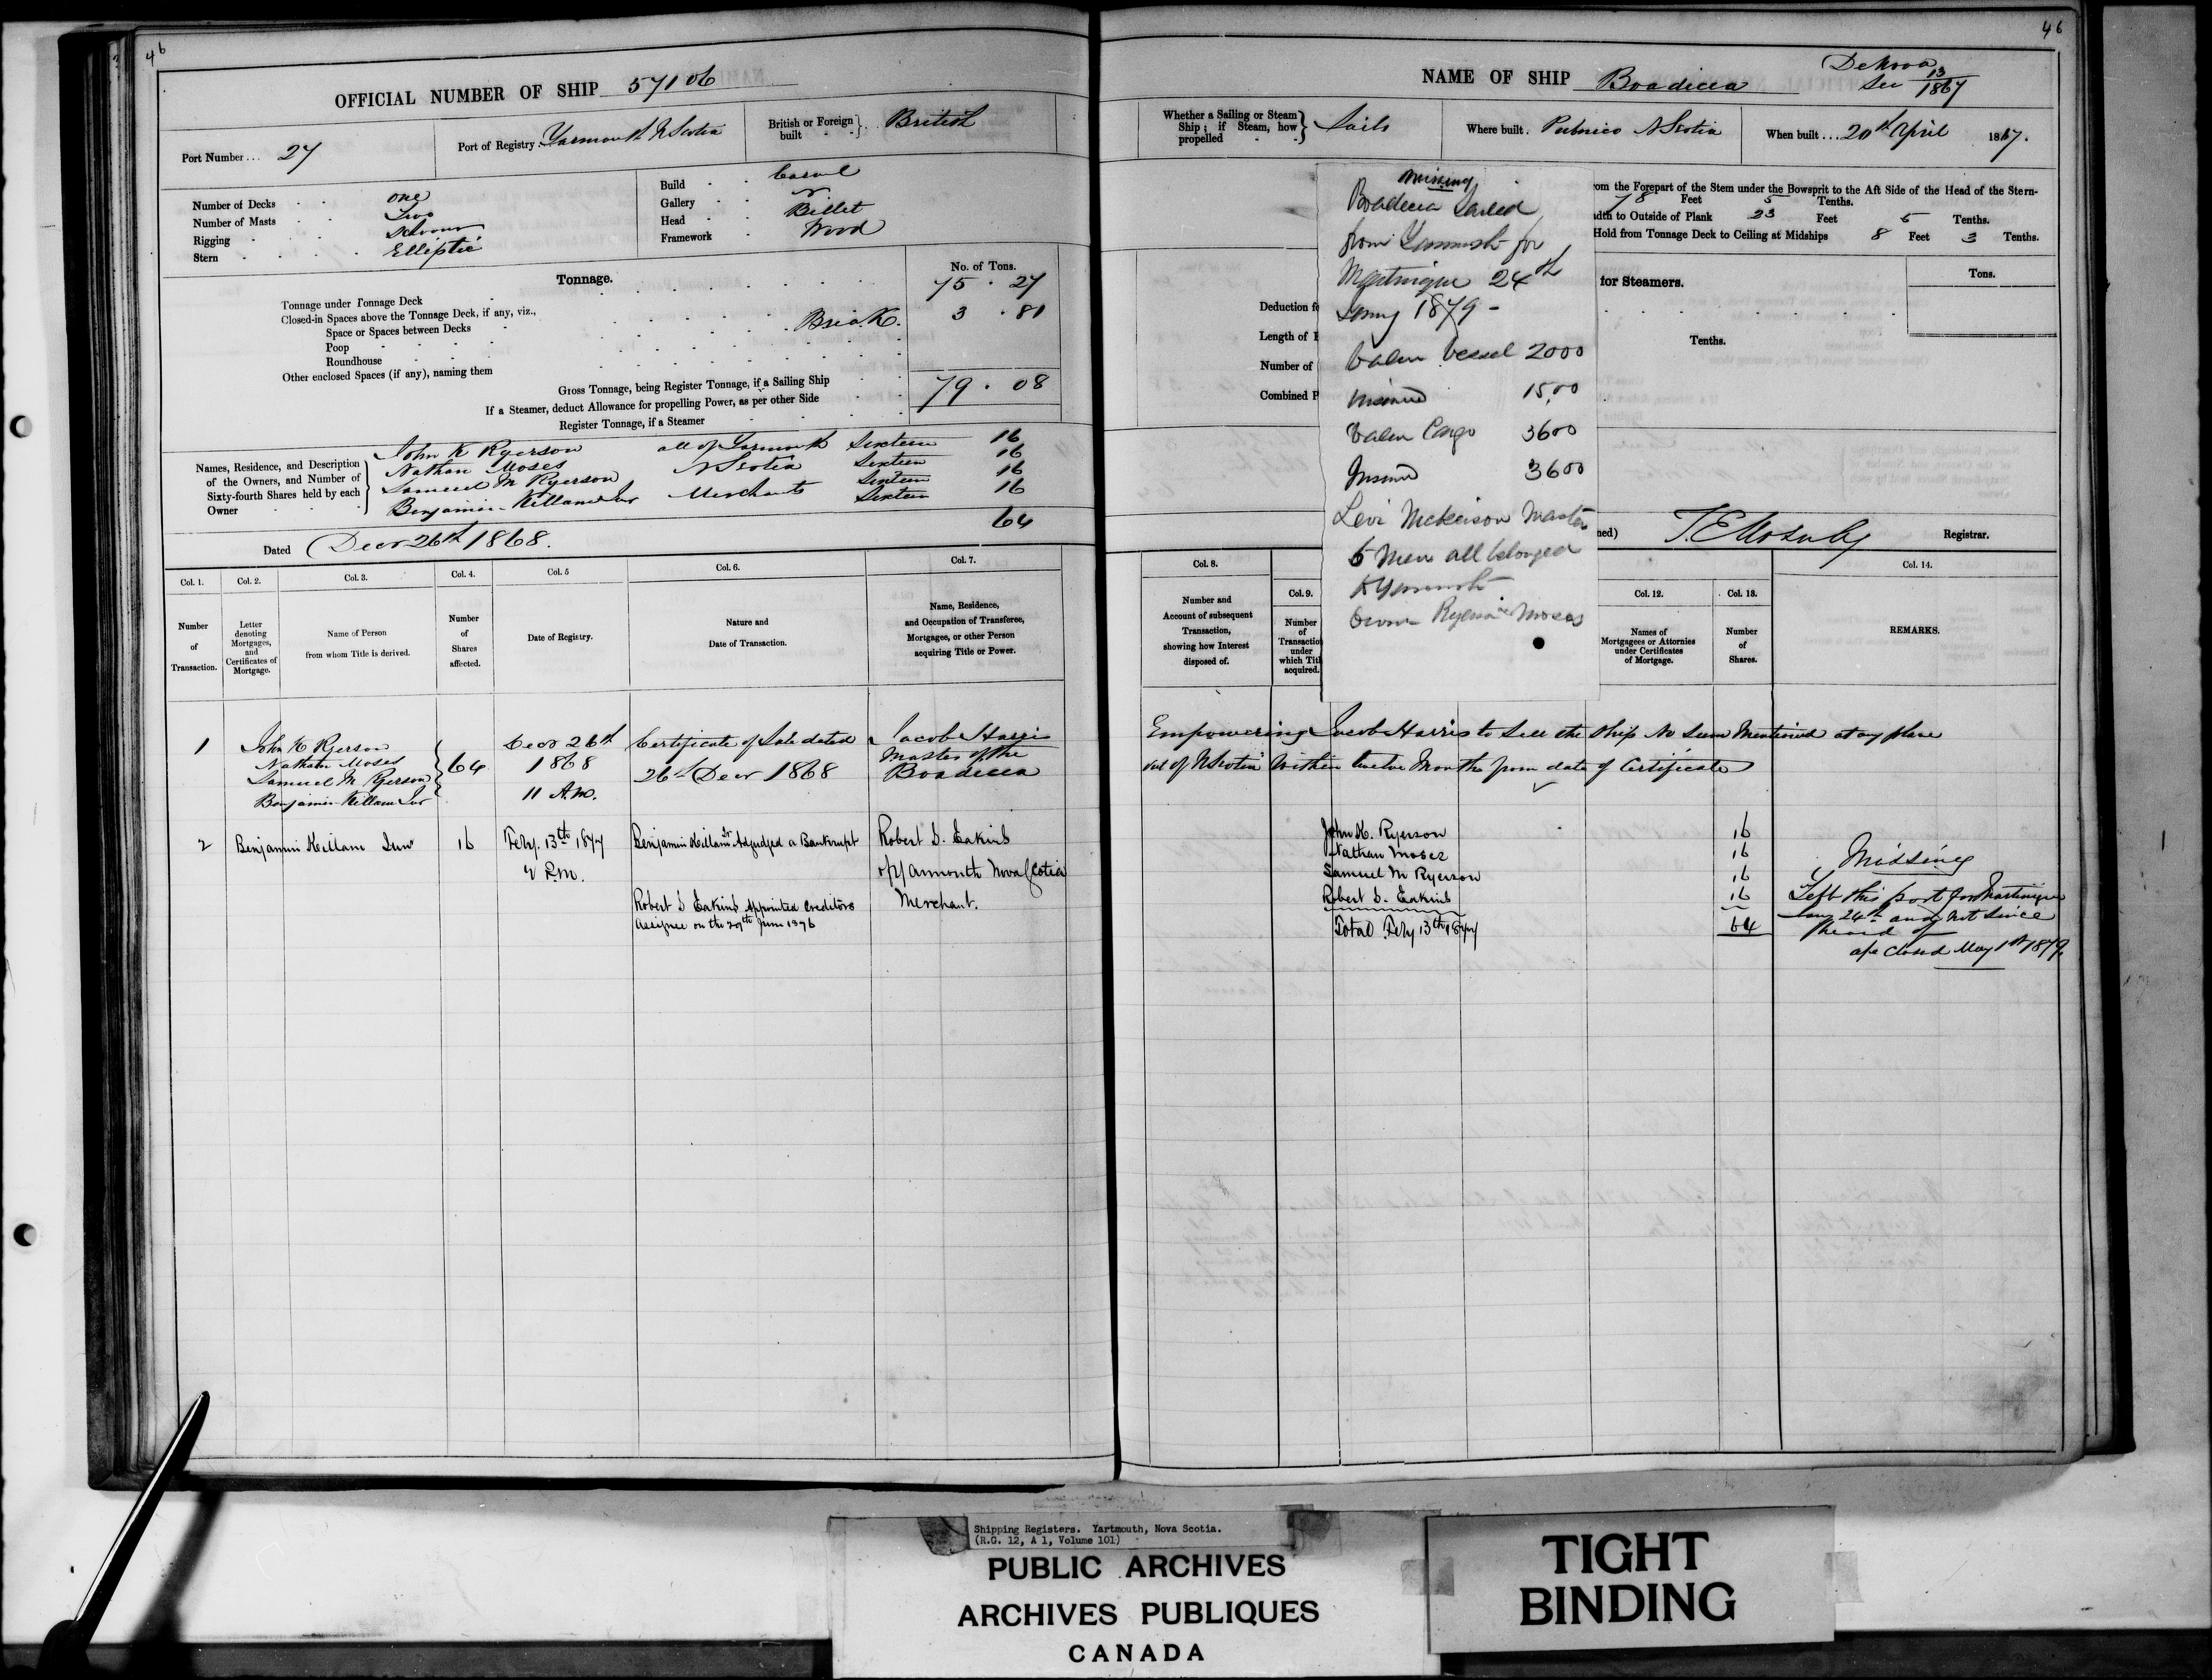 46
OFFICIAL NUMBER OF SHIP 57106
Port Number ... 27
Port of Registry Yarmouth N Scotia
British or Foreign built British
Number of Decks one
Number of Masts Two
Rigging Schooner
Stern Elliptic
Build Carvel
Gallery
Head Billet
Framework Wood
Tonnage.
No. of Tons.
Tonnage under Tonnage Deck 75 . 27
Closed-in Spaces above the Tonnage Deck, if any, viz.,
Space or Spaces between Decks Break. 3 . 81
Poop
Roundhouse
Other enclosed Spaces (if any), naming them
Gross Tonnage, being Register Tonnage, if a Sailing Ship 79 . 08
If a Steamer, deduct Allowance for propelling Power, as per other Side
Register Tonnage, if a Steamer
Names, Residence, and Description of the Owners, and Number of Sixty-fourth Shares held by each Owner
John K Ryerson all of Yarmouth Sixteen 16
Nathan Moses N Scotia Sixteen 16
Samuel M Ryerson Sixteen 16
Benjamin Killam Jnr Merchants Sixteen 16
64
Dated Decr 26th 1868.
Col. 1. Col. 2. Col. 3. Col. 4. Col. 5 Col. 6. Col. 7.
Number of Transaction.
Letter denoting Mortgages, and Certificates of Mortgage.
Name of Person from whom Title is derived.
Number of Shares affected.
Date of Registry.
Nature and Date of Transaction.
Name, Residence, and Occupation of Transferee, Mortgagee, or other Person acquiring Title or Power.
1 John K Ryerson Decr 26th Certificate of Sale dated Jacob Harris
Nathan Moses 64 1868 26th Decr 1868 Master of the
Samuel M Ryerson Boadicea
Benjamin Killam Jnr 11 A.M.
2 Benjamin Killam Junr 16 Feby. 13th 1877 Benjamin Killam Jr Adjudged a Bankrupt Robert S. Eakins
2 P.M. of Yarmouth Nova Scotia
Robert S Eakins Appointed Creditors Merchant.
Assignee on the 29th June 1876
46
NAME OF SHIP Boadicea
De Novo
See 13/1867
Whether a Sailing or Steam Ship; if Steam, how propelled Sails
Where built. Pubnico N Scotia
When built ... 20th April 1867.
rom the Forepart of the Stem under the Bowsprit to the Aft Side of the Head of the Stern-
78 Feet 5 Tenths.
dth to Outside of Plank 23 Feet 5 Tenths.
Hold from Tonnage Deck to Ceiling at Midships 8 Feet 3 Tenths.
for Steamers.
Tons.
Deduction fo
Length of
Number of
Combined P
Tenths.
missing
Boadicea Sailed
from Yarmouth for
Martinique 24th
Jany 1879 -
Value Vessel 2000
Insured 1500
Value Cargo 3600
Insured 3600
Levi Nickerson Master
5 Men all belonged
to Yarmouth
Owners Ryerson Moses
ned) T. E. Moberly Registrar.
Col. 8. Col. 9. Col. 12. Col. 13. Col. 14.
Number and Account of subsequent Transaction, showing how Interest disposed of.
Number of Transactio under which Titl acquired.
Names of Mortgagees or Attornies under Certificates of Mortgage.
Number of Shares.
REMARKS.
Empowering Jacob Harris to Sell the Ship No Sum Mentioned at any place
out of N Scotia Within twelve Months from date of Certificate
John K. Ryerson 16
Nathan Moses 16
Samuel M Ryerson 16
Robert S. Eakins 16
Total Feby 13th 1877 64
Missing
Left this port for Martinique
Jany 24th and not since
heard of
a/c Closed May 1st 1879.
Shipping Registers. Yartmouth, Nova Scotia.
(R.G. 12, A 1, Volume 101)
PUBLIC ARCHIVES
ARCHIVES PUBLIQUES
CANADA
TIGHT
BINDING